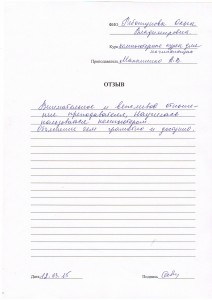 ФИО: Рябчикова Ольга
Владимировна
Курс: компьютерные курсы для
начинающих
Преподаватель: Малашенко В.В.
ОТЗЫВ
Внимательное и вежливое отноше-
ние преподавателя. Научилась
пользоваться компьютером.
Объяснение тем грамотно и доступно.
Дата: 18.03.25
Подпись: